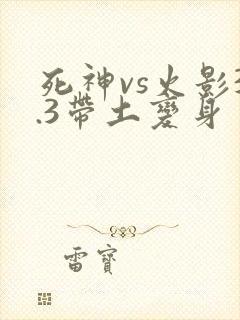 死神vs火影3
.3帶土變身
雷寶